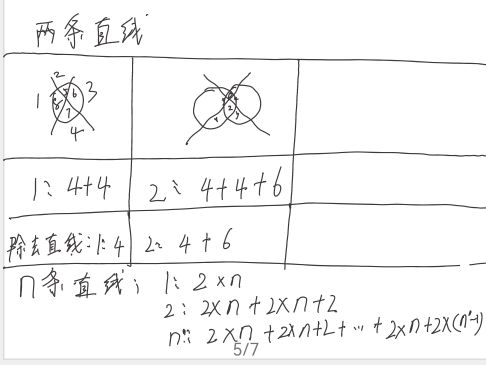 两条直线
1 2 3 6 8 7 4
2 4 3
1: 4+4 2: 4+4+6
除去直线:1:4 2: 4+6
n条直线: 1: 2×n
2: 2×n+2×n+2
n: 2×n+2×n+2+…+2×n+2×(n-1)
5/7